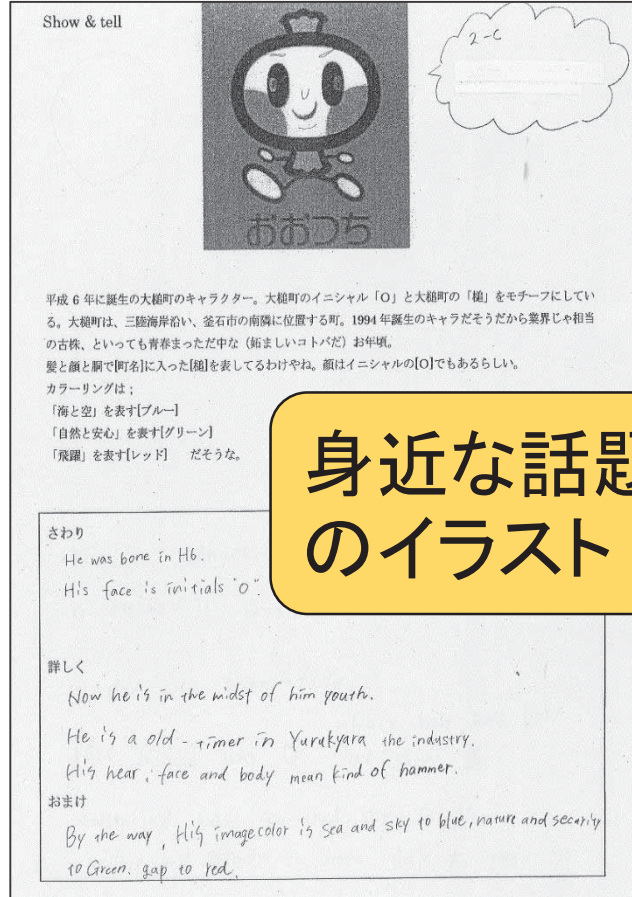 Show & tell
2-C
おおつち
平成 6 年に誕生の大槌町のキャラクター。大槌町のイニシャル「O」と大槌町の「槌」をモチーフにしてい
る。大槌町は、三陸海岸沿い、釜石市の南隣に位置する町。1994 年誕生のキャラだそうだから業界じゃ相当
の古株、といっても青春まっただ中な（妬ましいコトバだ）お年頃。
髪と顔と胴で[町名]に入った[槌]を表してるわけやね。顔はイニシャルの[O]でもあるらしい。
カラーリングは；
「海と空」を表す[ブルー]
「自然と安心」を表す[グリーン]
「飛躍」を表す[レッド]　だそうな。
身近な話題
のイラスト
さわり
He was bone in H6.
His face is initials "O".
詳しく
Now he is in the midst of him youth.
He is a old-timer in Yurukyara the industry.
His hear, face and body mean kind of hammer.
おまけ
By the way, His imagecolor is sea and sky to blue, nature and security
to Green. gap to red.